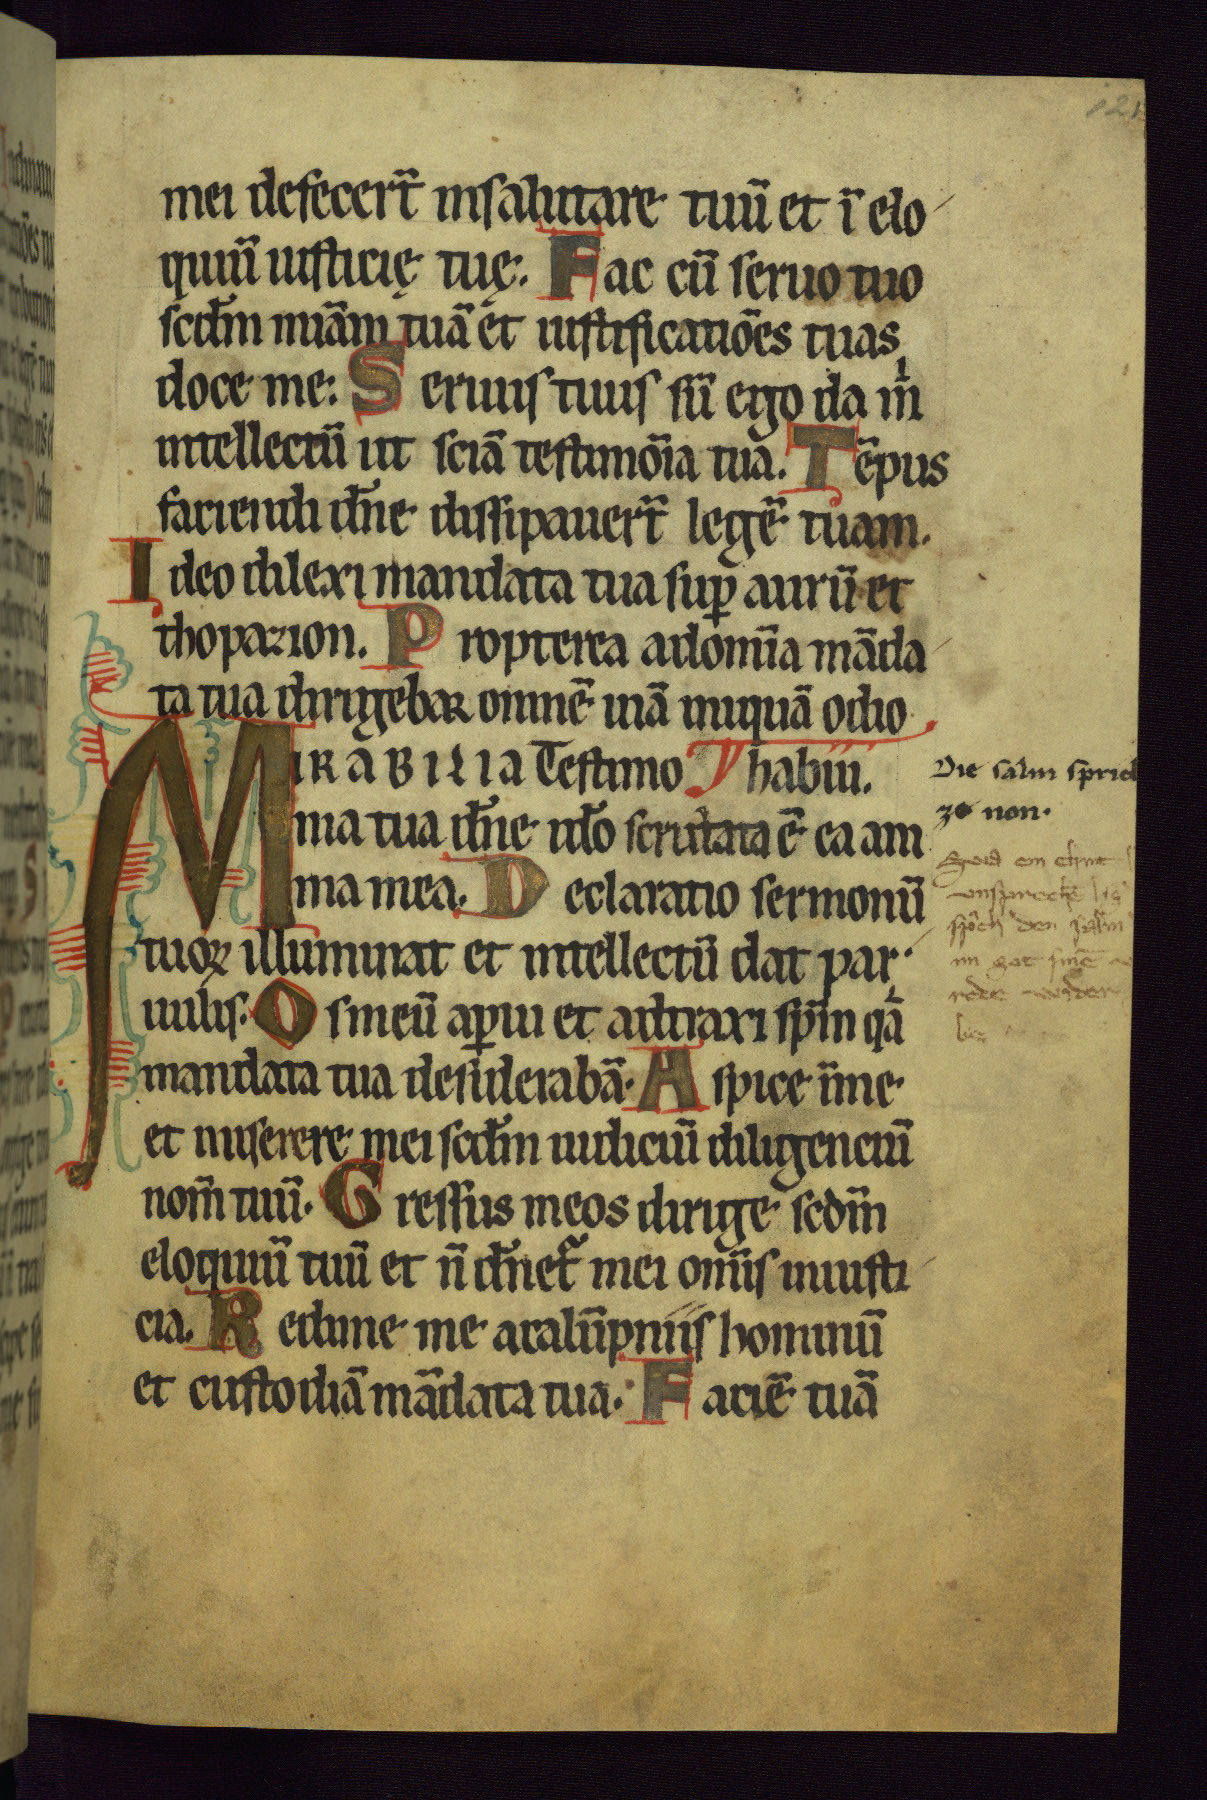 121
mei defecer̄t insalutare tuū et ī elo
quiū iusticię tuę. Fac cū seruo tuo
scd̄m miām tuā et iustificatiōes tuas
doce me. Seruus tuus sū ego da m̄
intellectū ut sciā testimōia tua. Tēpus
faciendi dn̄e dissipauer̄t legē tuam.
Ideo dilexi mandata tua sup aurū et
thopazion. Propterea adom̄ia māda
ta tua dirigebar omnē uiā iniquā odio
MIRABILIA Testimo habui.
nia tua dn̄e ido scrutata ē ea am
ma mea. Declaratio sermonū
tuoꝝ illuminat et intellectū dat par
uulis. Os meū aperui et adtraxi sp̄m qā
mandata tua desiderabā. Aspice īme
et miserere mei scd̄m iudiciū diligenciū
nom̄ tuū. Gressus meos dirige scdm̄
eloquiū tuū et n̄ dn̄et mei om̄is iniusti
cia. Redime me acalūpniis hominū
et custodiā mādata tua. Faciē tuā
Die salm spric
ze non.